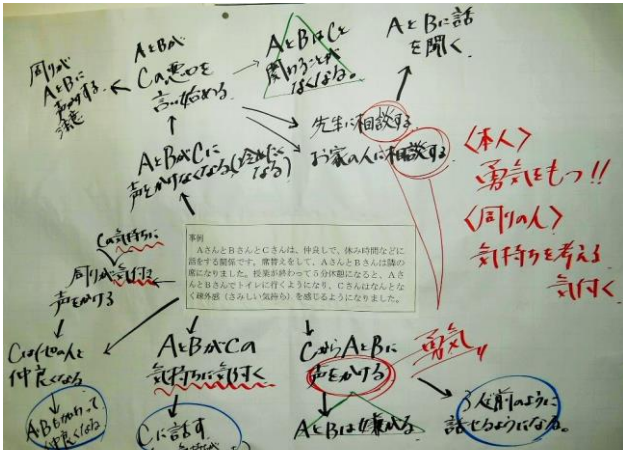 周りが
AとBに
声かけする
注意
AとBが
Cの悪口を
言い始める
AとBはCと
関わることが
なくなる。
AとBに話
を聞く。
先生に相談する
お家の人に相談する
AとBがCに
声をかけなくなる
なる)
〈本人〉
勇気をもつ!!
〈周りの人〉
気持ちを考える
気付く
事例
AさんとBさんとCさんは、仲良しで、休み時間などに
話をする関係です。席替えをして、AさんとBさんは隣の
席になりました。授業が終わって5分休憩になると、Aさ
んとBさんでトイレに行くようになり、Cさんはなんとな
く疎外感(さみしい気持ち)を感じるようになりました。
Cの気持ちに
周りが気付き
声をかける
Cは他の人と
仲良くなる
A・Bもかわって
仲良くなる
AとBがCの
気持ちに気付く
Cに話す
CからAとBに
声をかける
勇気
AとBは嫌がる
3人で前のように
話せるようになる。